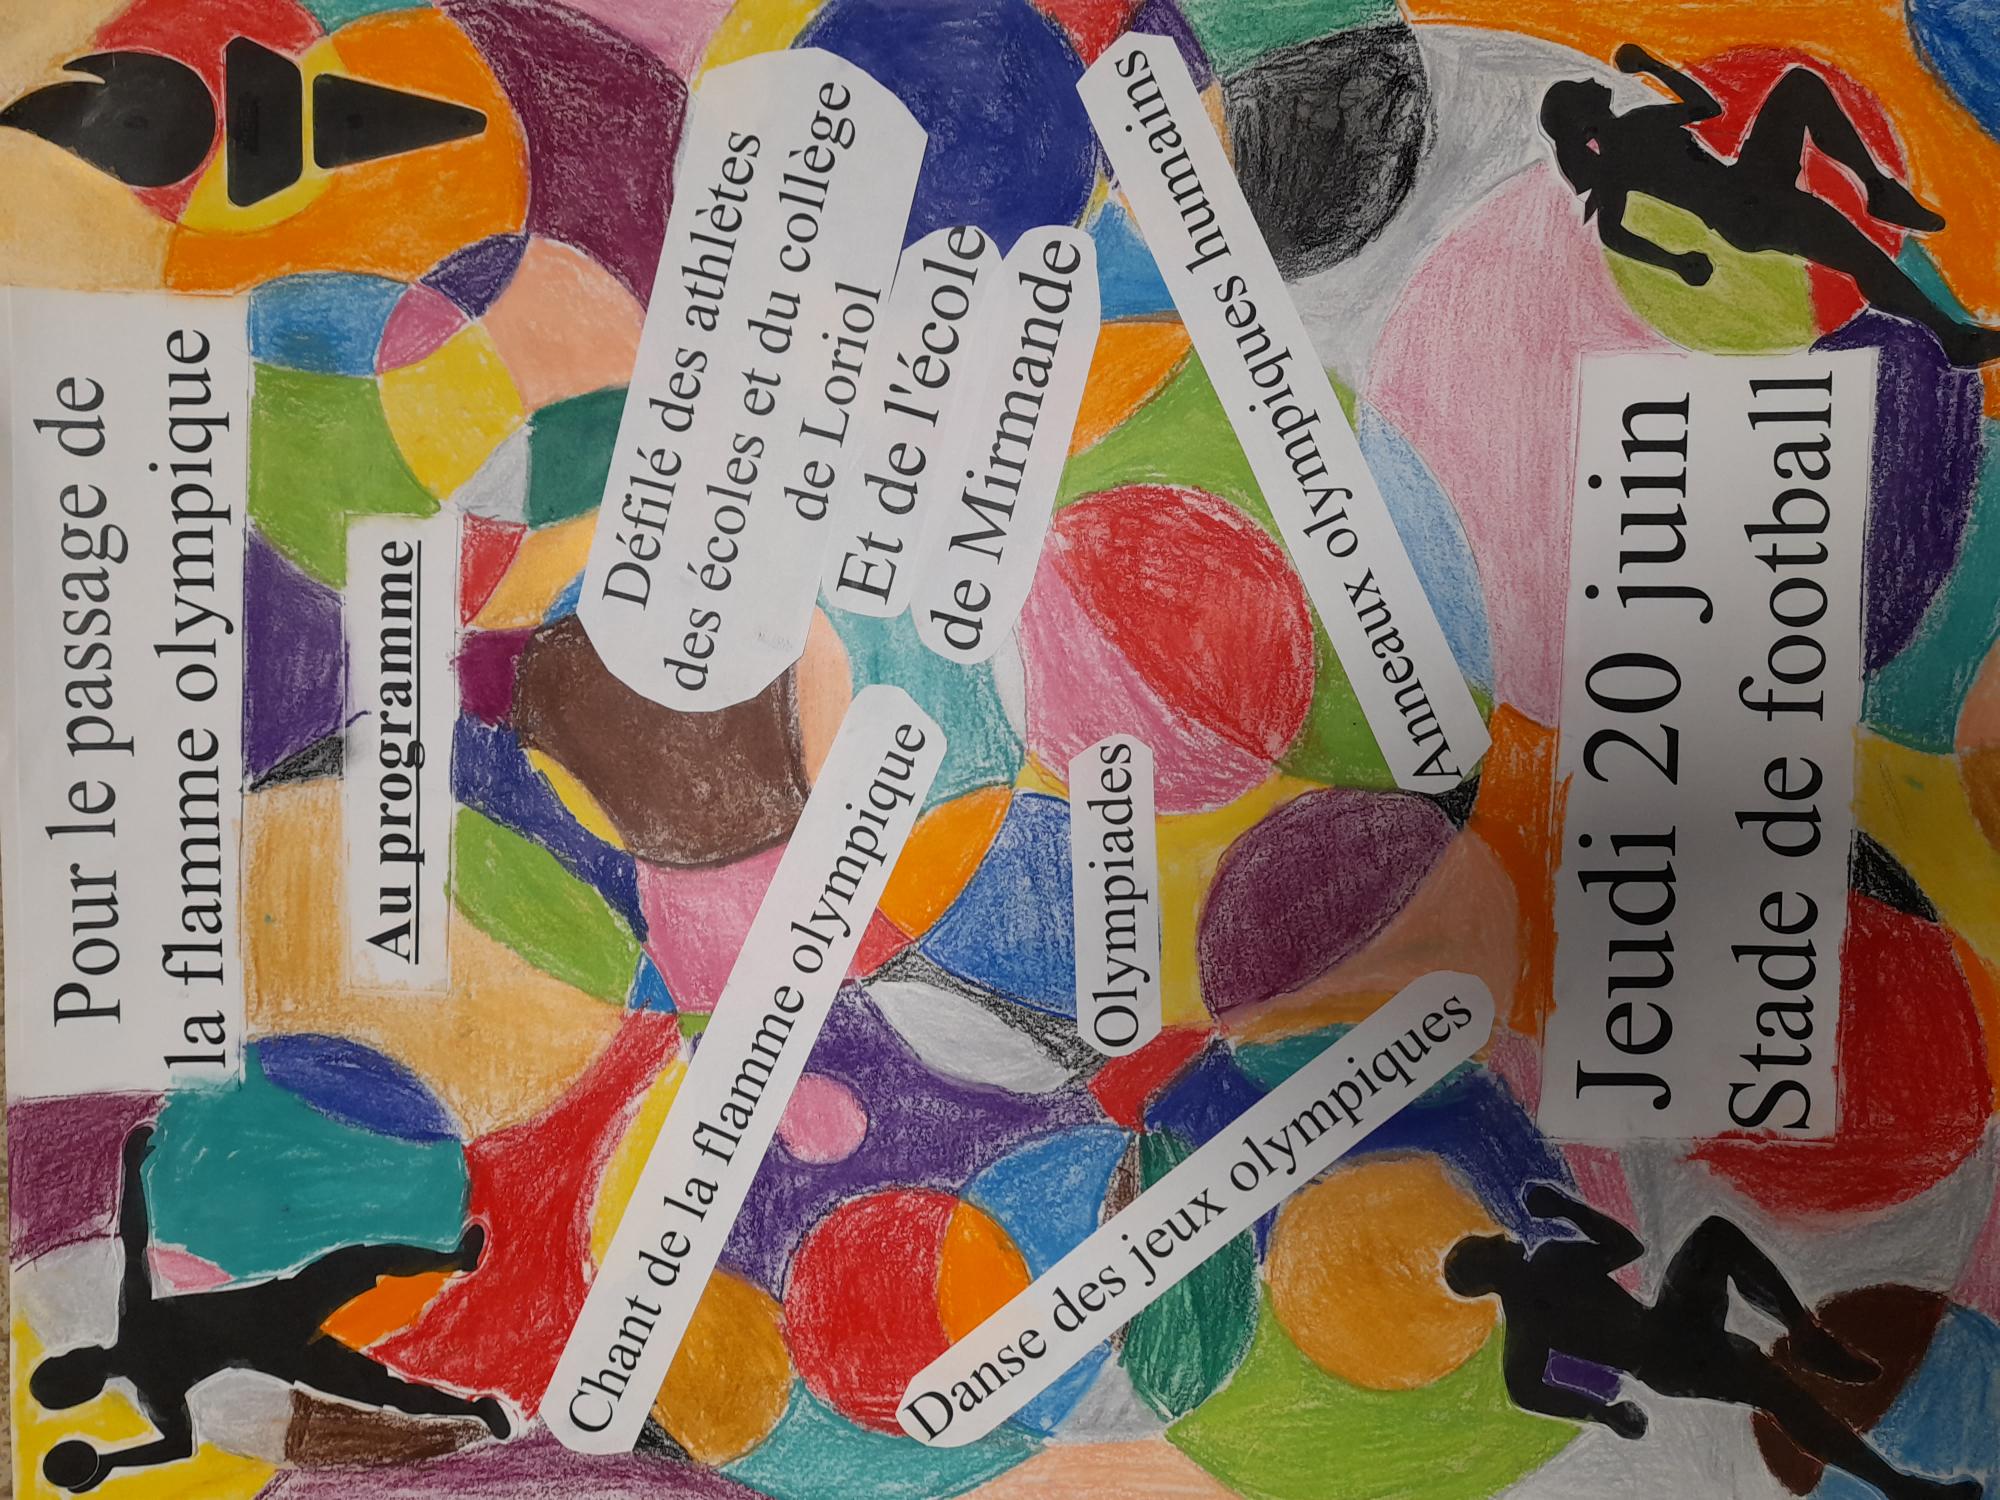 Pour le passage de
la flamme olympique
Au programme
Défilé des athlètes
des écoles et du collège
de Loriol
Et de l'école
de Mirmande
Chant de la flamme olympique
Olympiades
Anneaux olympiques humains
Danse des jeux olympiques
Jeudi 20 juin
Stade de football